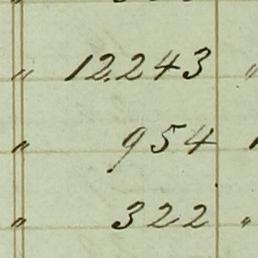 " 12.243 "
" 954
" 322 "